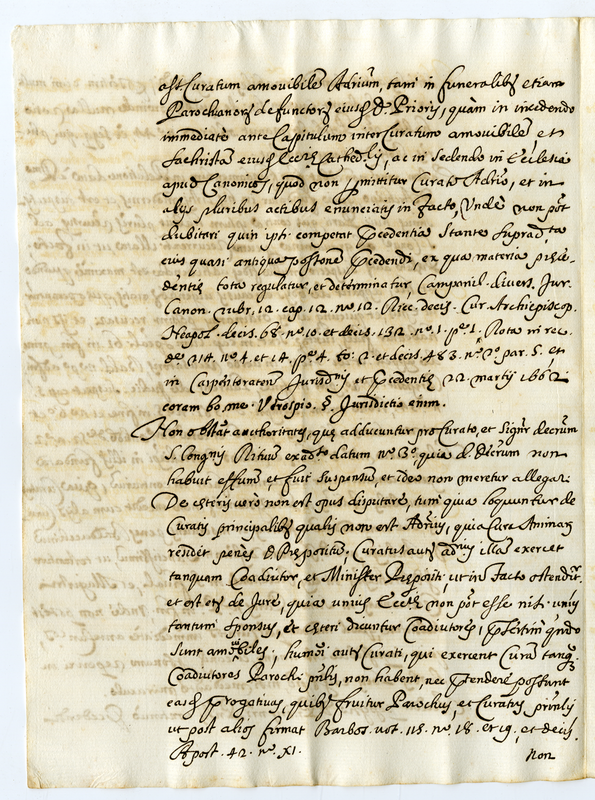 est Curatum amovibile Adrium, tam in funeralib9 etiam
Parochianor9 defunctor9 eiusd. D. Prioris, quàm in incedendo
immediatè ante Capitulum inter Curatum amovibile, et
Sachristā eiusd. Eccīe Cathed.lis, ac in sedendo in Ecclesia
apud Canonicos, quod non pmittitur Curato Adrio, et in
alijs pluribus actibus enunciatis in facto, Undè non pōt
dubitari quin ipsi competat Pcedentia stante suprad.ta
eius quasi antiqua possone Pcedendi, ex qua materia prece-
dentiæ tota regulatur, et determinatur, Campanil. divers. Jur.
Canon. rubr. 12. cap. 12. nº. 12. Ricc. decis. Cur. Archiepiscop.
Neapol. decis. 68. nº. 10. et decis. 132. nº. 1. pe. 1. Rota in rec.
dec. 214. nº. 4. et 14. pe. 4. to. 2. et decis. 483. nº. 2º. par. 5. et
in Carpentoraten. Jurisd.nis et Pcedentiæ 22 martij 1662
coram bo: me: Verospio. §. Jurisdictio enim.
Non obstāt authoritates, quæ adducuntur pro Curato, et signr decrum
S. Congnis Rituum exad.to datum nº. 3º. quia d. Decrum non
habuit effum, et fuit suspensum, et ideo non meretur allegari
De cæteris verò non est opus disputare, tum quia loquuntur de
Curatis principalib9 qualis non est Adrius, quia Cura Animarum
residet penès D. Præpositum. Curatus autem adrius illā exercet
tanquam Coadiutor, et Minister Præpositi, ut in facto ostenditr
et est etiā de Jure, quia unius Ecclīe non pōt esse nisi unus
tantum sponsus, et cæteri dicuntur Coadiutores, Psertim quando
sunt amōbiles; humōi autē Curati, qui exercent Curā tanq
Coadiutores Parochi prilis, non habent, nec Ptendere possunt
easd. Prærogativas, quib9 fruitur Parochus, et Curatus prinlis
ut post alios firmat Barbos. vot. 115. nº. 18. et 19. et decis.
Apost. 42. nº. XI.
non